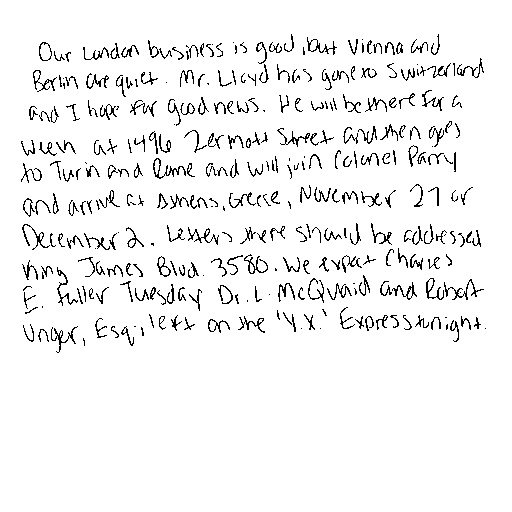 Our London business is good, but Vienna and
Berlin are quiet. Mr. Lloyd has gone to Switzerland
and I hope for good news. He will be there for a
week at 1496 Zermott Street and then goes
to Turin and Rome and will join Colonel Parry
and arrive at Athens, Greece, November 27 or
December 2. Letters there should be addressed
King James Blvd. 3580. We expect Charles
E. Fuller Tuesday Dr. L. McQuaid and Robert
Unger, Esq., left on the 'Y.X.' Express tonight.